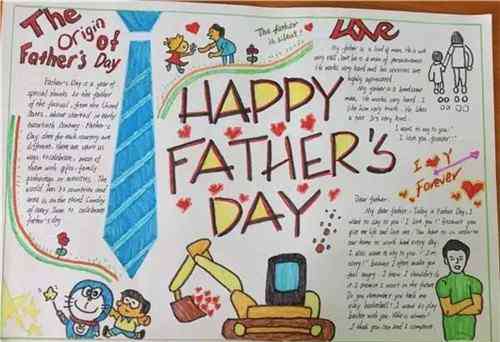 The
Origin
Of
Father's Day
Father's Day is a year of
special thanks to the father
of the festival, from the United
States, about started in early
twentieth century. Father's
Day date for each country are
different. there are various
ways to celebrate, most of
them with gifts, family
gatherings or activities. The
world has 52 countries and
area is on the third Sunday
of every June to celebrate
Father's day
The father
is silent!
HAPPY
FATHER'S
DAY
LOVE
My father is a kind of man. He is not
very tall, but he is a man of perseverance.
He works very hard and his services are
highly appreciated.
My father is a handsome
man. He works very hard. I
like him very much. He likes
a rest. It's very kind.
I want to say to you:"
I love you, forever!"
I Y
Forever
Dear father:
My dear father, Today is Father Day, I
want to say to you "I love you!" Because you
give me life and love me. You have to in order to
our home to work hard every day
I also want to say to you "I'm
sorry!" because I often make you
feel angry. I know I shouldn't do
it. I promise I won't in the future
Do you remember you took me
play basketball? I want to play
basket with you. Who is winner?
I thank you can and I compare